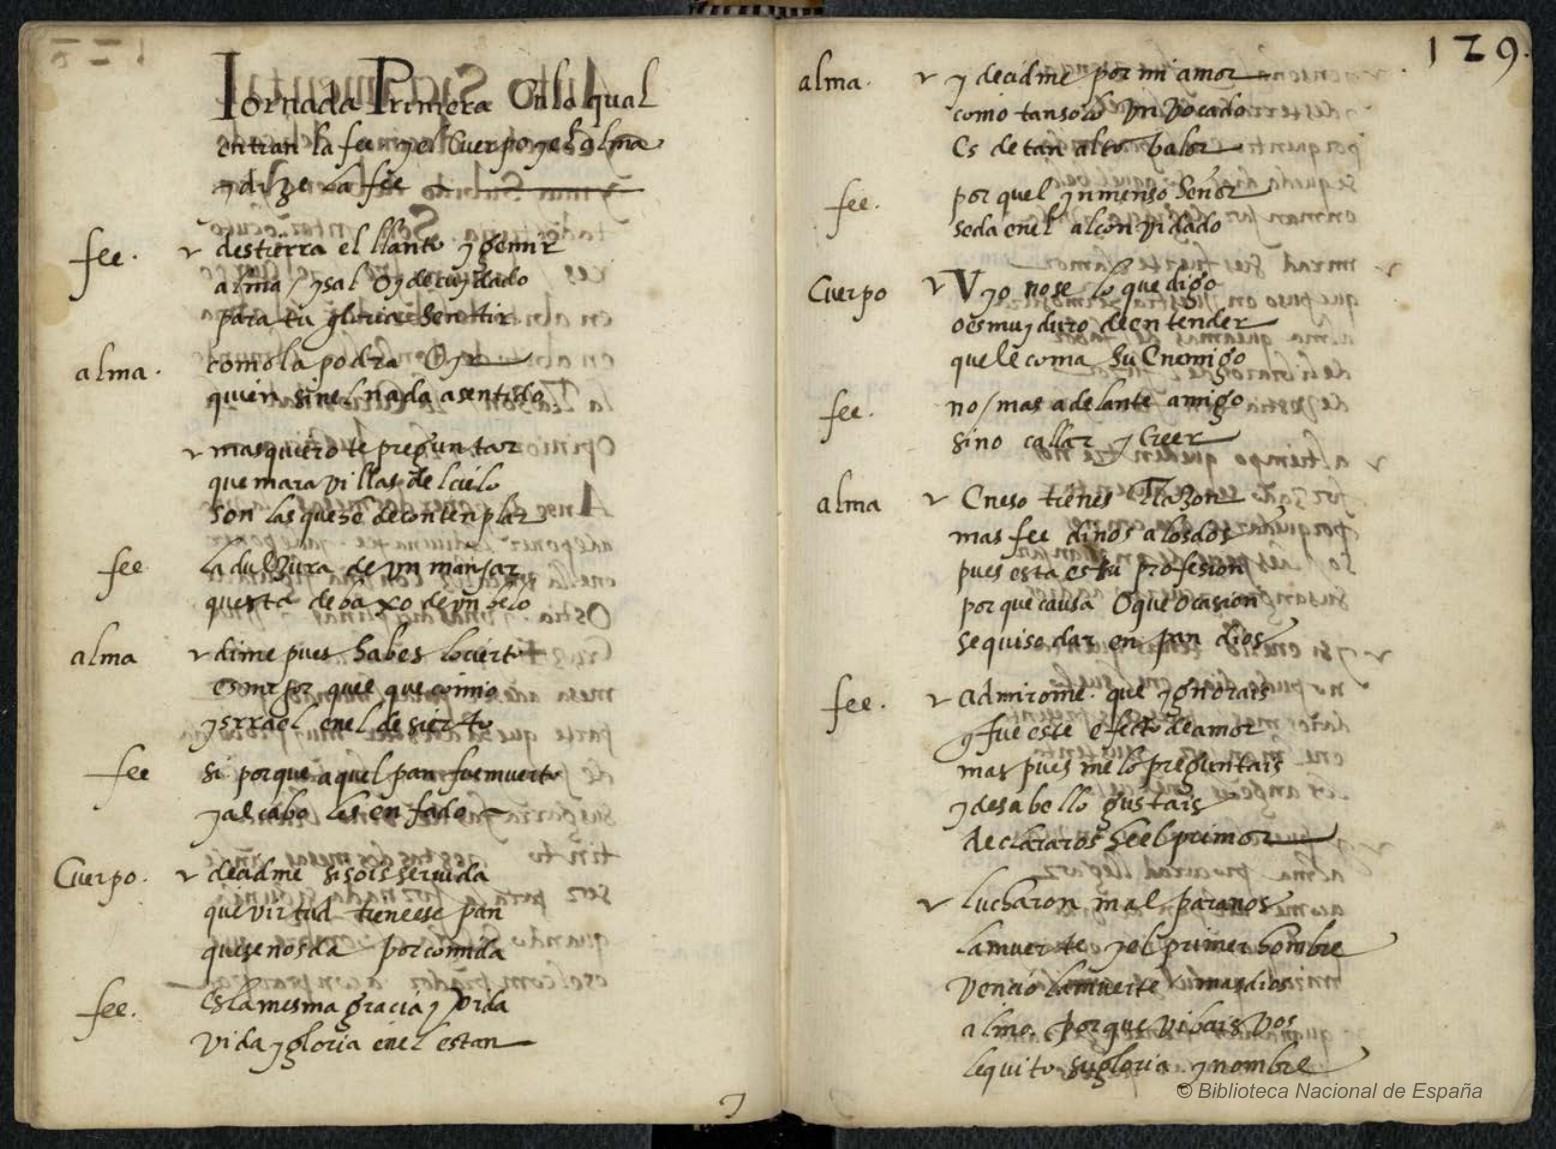 Jornada Primera En la qual
entran la fee y el Cuerpo y el alma
y dize la fee
fee. destierra el llanto y gemir
alma / y sal oy de cuydado
para tu gloria sentir
alma. como la podra Oyr
quien sin el nada a sentido
mas quiero te preguntar
que maravillas del cielo
son las que se de contenplar
fee la dulzura de un manjar
questa debaxo de un belo
alma dime pues sabes lo cierto
es mejor quel que comio
ysrrael en el desierto
fee si porque aquel pan fue muerto
y al cabo les enfado
Cuerpo. decidme si sois servida
que virtud tiene ese pan
que se nos da por comida
fee. Es la mesma gracia y vida
vida y gloria en el estan
129.
alma. y decidme por mi amor
como tan solo un vocado
Es de tan alto balor
fee. por quel ynmenso Señor
se da en el al convidado
Cuerpo V yo no se lo que digo
o es muy duro de entender
que le coma su Enemigo
fee. no / mas adelante amigo
sino callar y Creer
alma En eso tienes Razon
mas fee dinos a los dos
pues esta es tu profesion
por que causa O que Ocasion
se quiso dar en pan dios
fee. admirome. que ygnorais
y fue este efecto de amor
mas pues me lo preguntais
y de sabello gustais
declararos he el primor
lucharon mal para nos
la muerte y el primer hombre
Vencio la muerte / mas dios
alma. porque vibais vos
le quito su gloria y nombre
© Biblioteca Nacional de España